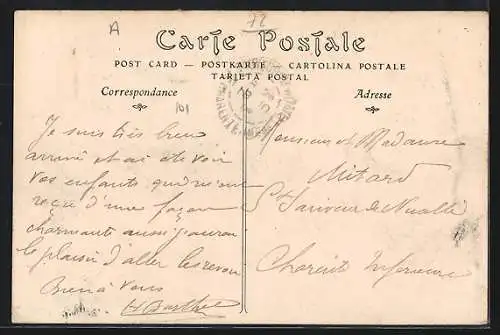 A
72
Carte Postale
POST CARD — POSTKARTE — CARTOLINA POSTALE
TARJETA POSTAL
Correspondance
Adresse
101
Je suis très bien
arrivé et ai été voir
vos enfants qui
reçu d'une façon
charmante aussi j'aurai
le plaisir d'aller les revoir
Bien à vous
H Barthe
Monsieur et Madame
Mitard
St Sauveur de Nuaillé
Charente Inférieure